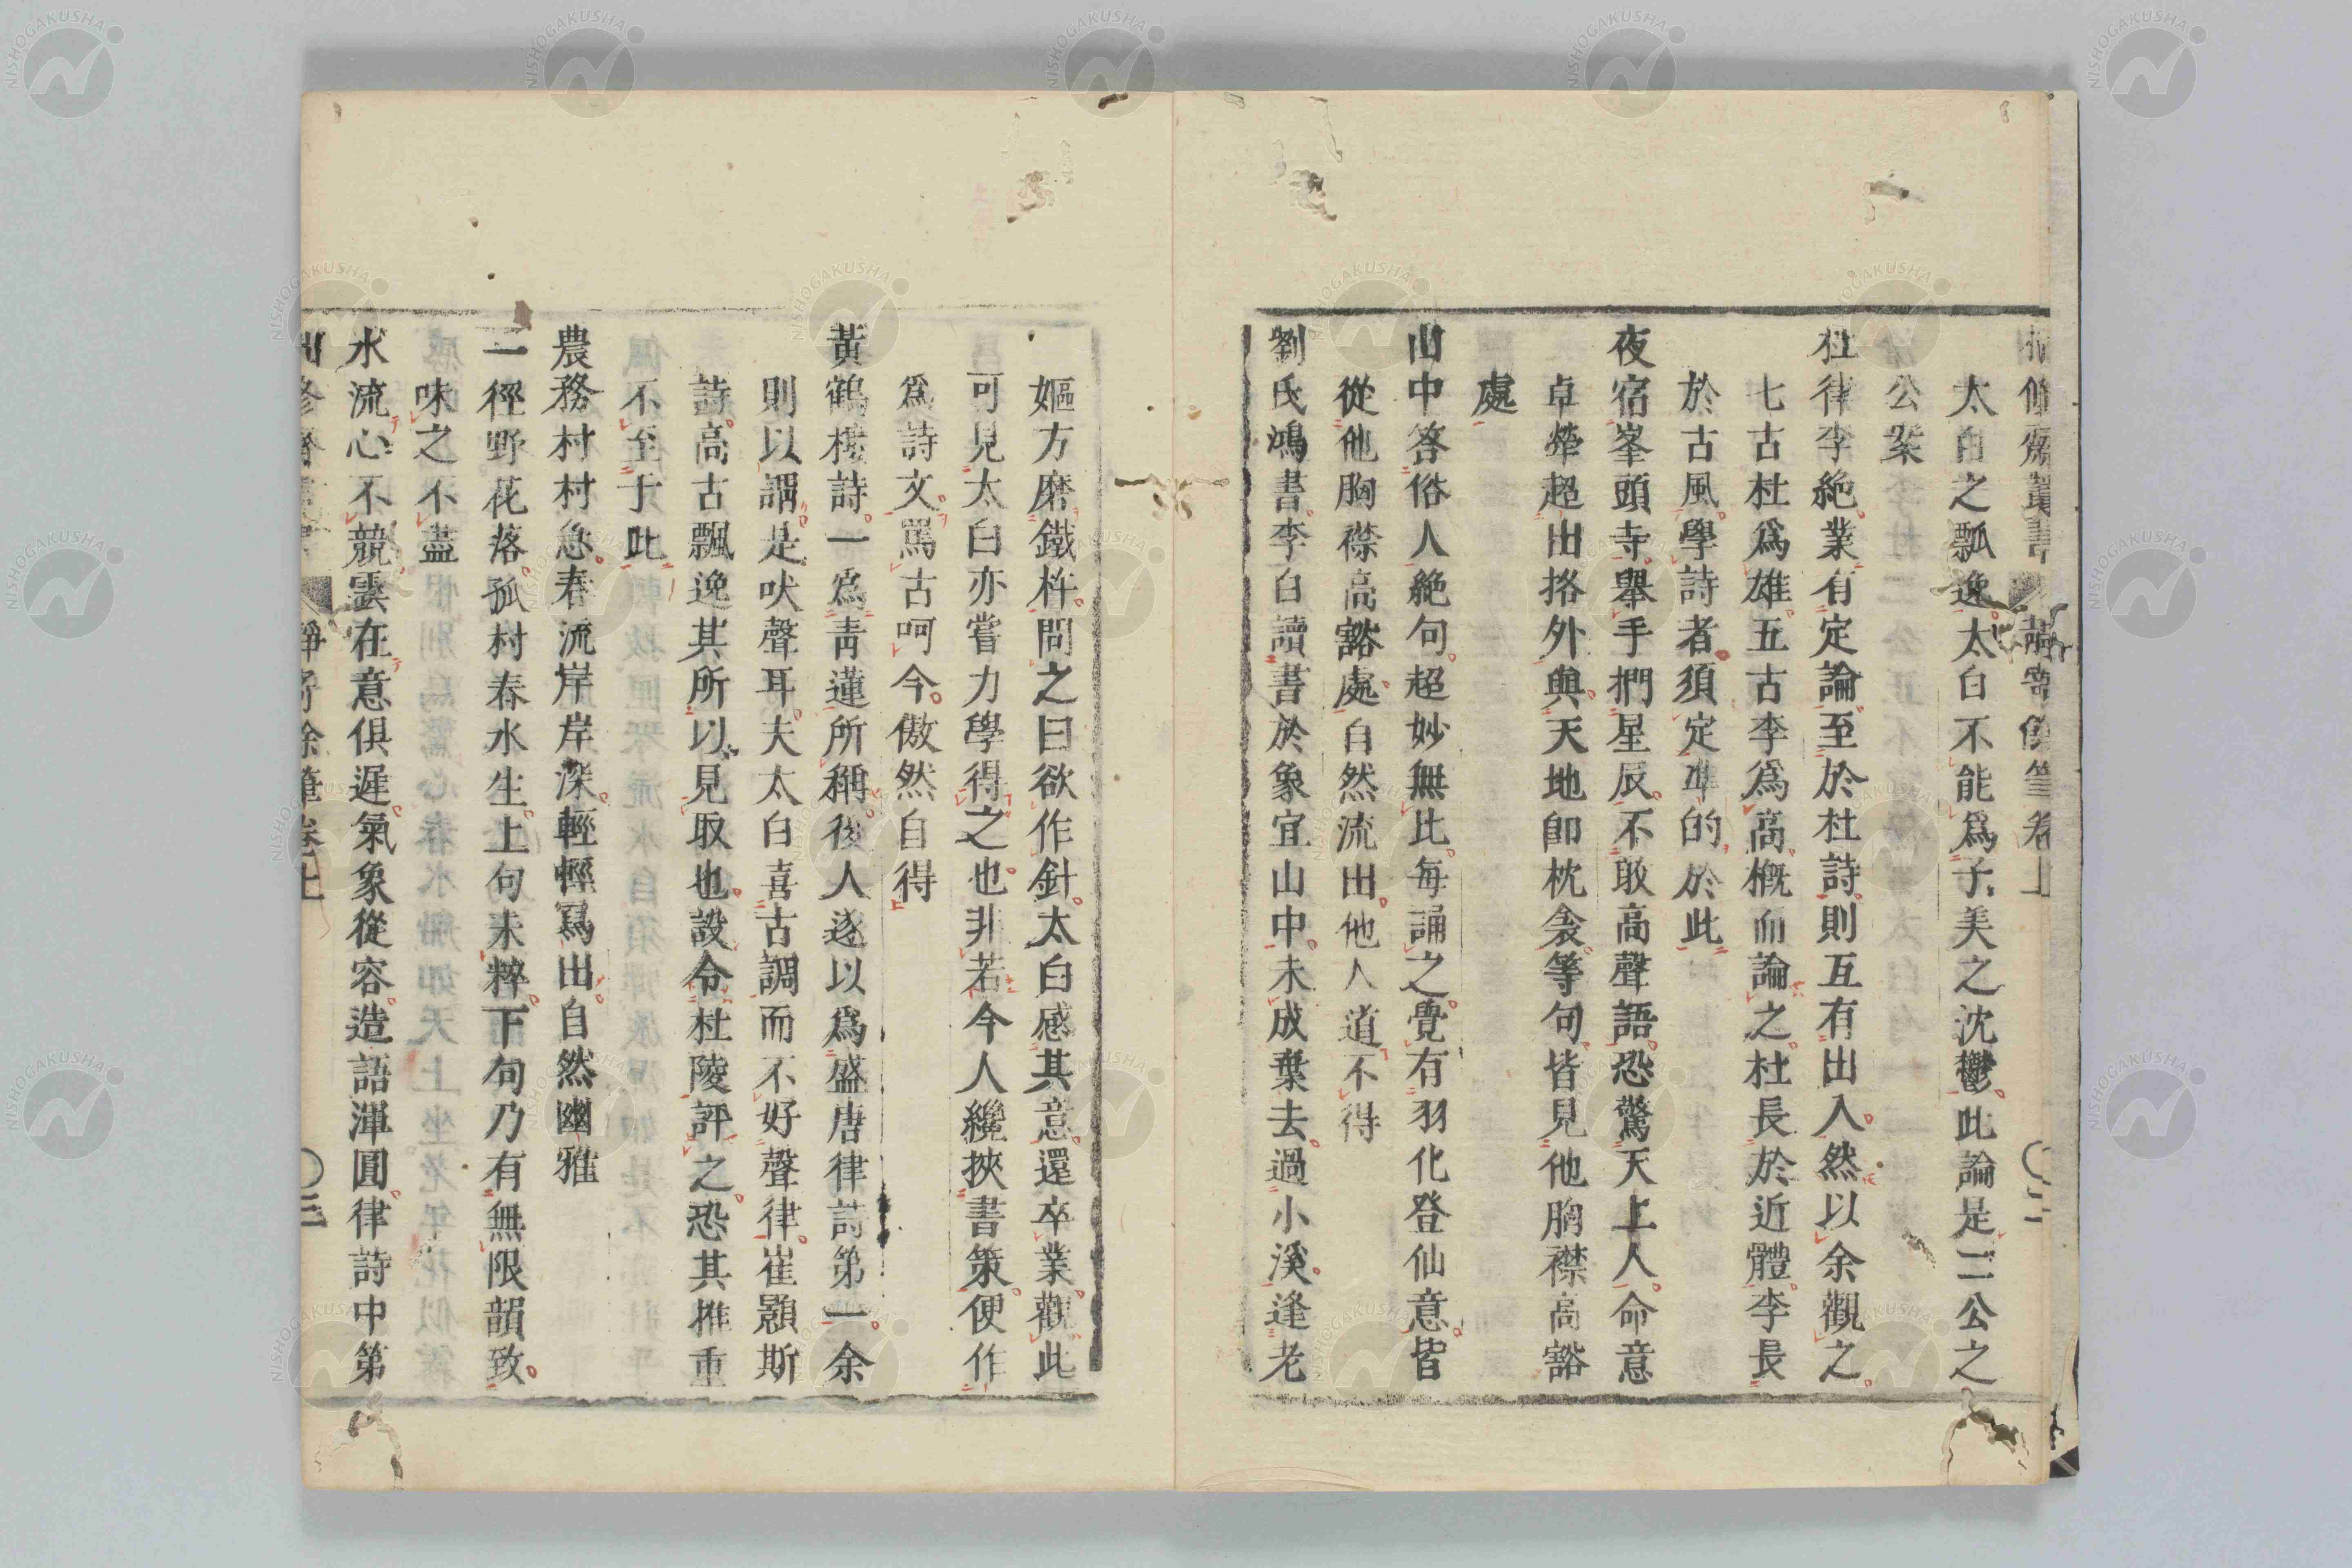 太白之飄逸太白不能爲子美之沈鬱此論是二公之
公案
杜律李絶業有定論至於杜詩則互有出入然以余觀之
七古杜爲雄五古李爲高概而論之杜長於近體李長
於古風學詩者須定準的於此
夜宿峯頭寺舉手捫星辰不敢高聲語恐驚天上人命意
卓犖超出挌外與天地卽枕衾等句皆見他胸襟高豁
處
山中答俗人絶句超妙無比每誦之覺有羽化登仙意皆
從他胸襟高豁處自然流出他人道不得
劉氏鴻書李白讀書於象宜山中未成棄去過小溪逢老
嫗方磨鐵杵問之曰欲作針太白感其意還卒業觀此
可見太白亦嘗力學得之也非若今人纔挾書策便作
爲詩文罵古呵今傲然自得
黃鶴樓詩一爲靑蓮所稱後人逐以爲盛唐律詩第一余
則以謂是吠聲耳夫太白喜古調而不好聲律崔顥斯
詩高古飄逸其所以見取也設令杜陵評之恐其推重
不至于此
農務村村急春流岸岸深輕輕寫出自然幽雅
一徑野花落孤村春水生上句未粹下句乃有無限韻致
味之不盡
水流心不競雲在意俱遲氣象從容造語渾圓律詩中第
NISHOGAKUSHA